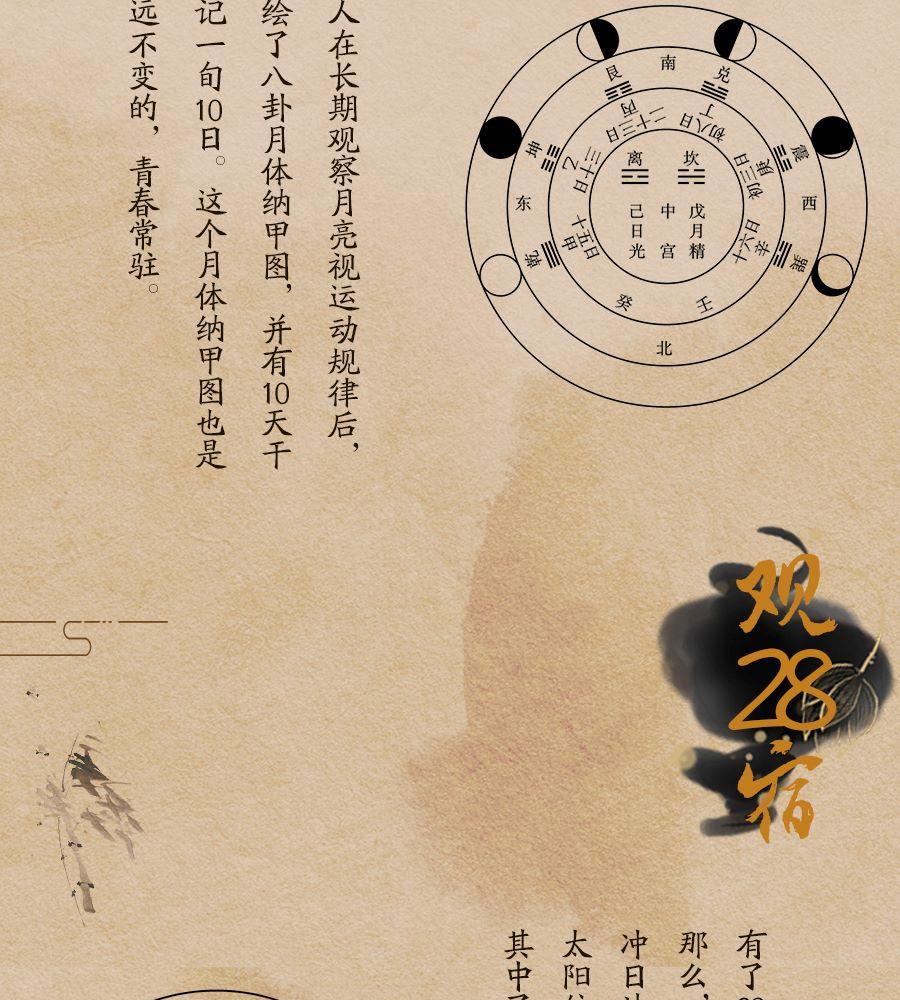 人在长期观察月亮视运动规律后，
绘了八卦月体纳甲图，并有10天干
记一旬10日。这个月体纳甲图也是
远不变的，青春常驻。
南
艮
兑
丙
丁
二十三日
初八日
坤
震
乙
三十日
庚
初三日
离
坎
东
西
己日光
中宫
戊月精
乾
巽
甲
十五日
辛
十六日
癸
壬
北
观28宿
有了
那么，
冲日
太阳
其中